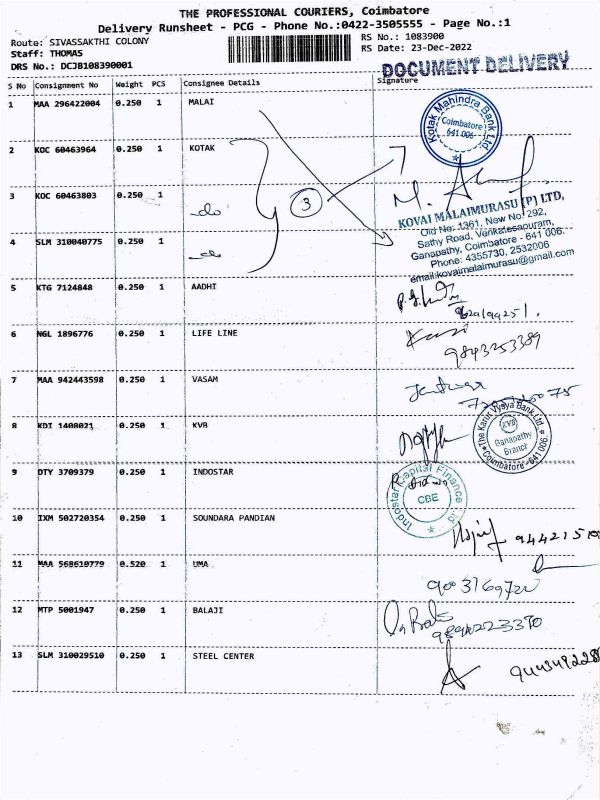 THE PROFESSIONAL COURIERS, Coimbatore
Delivery Runsheet - PCG - Phone No.:0422-3505555 - Page No.:1
Route: SIVASSAKTHI COLONY RS No.: 1083900
Staff: THOMAS RS Date: 23-Dec-2022
DRS No.: DCJB108390001
DOCUMENT DELIVERY
S No Consignment No Weight PCS Consignee Details Signature
1 MAA 296422004 0.250 1 MALAI
Kotak Mahindra Bank Ltd
Coimbatore
641 006
2 KOC 60463964 0.250 1 KOTAK
3 KOC 60463803 0.250 1 do
3
KOVAI MALAIMURASU (P) LTD,
Old No: 1361, New No: 292,
Sathy Road, Venkatesapuram,
Ganapathy, Coimbatore - 641 006.
Phone: 4355730, 2532006
email:kovaimalaimurasu@gmail.com
4 SLM 310040775 0.250 1 do
5 KTG 7124848 0.250 1 AADHI
6 NGL 1896776 0.250 1 LIFE LINE
9843253389
7 MAA 942443598 0.250 1 VASAM
8 KDI 1408021 0.250 1 KVB
The Karur Vysya Bank Ltd
KVB
Ganapathy
Branch
Coimbatore - 641 006
9 DTY 3709379 0.250 1 INDOSTAR
Indostar Capital Finance Ltd
CBE
10 IXM 502720354 0.250 1 SOUNDARA PANDIAN
11 MAA 568610779 0.520 1 UMA
12 MTP 5001947 0.250 1 BALAJI
13 SLM 310029510 0.250 1 STEEL CENTER